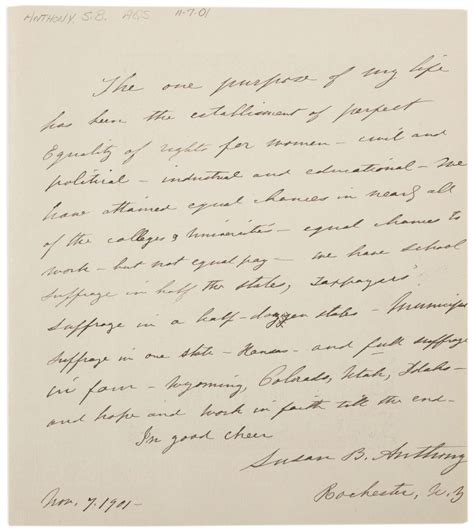 ANTHONY. S.B. ALS 11-7-01
The one purpose of my life
has been the establisment of perfect
Equality of rights for women - civil and
political - industrial and educational - We
have attained equal chances in nearly all
of the colleges & Universities - equal chances to
work - but not equal pay - we have school
suffrage in half the states, Taxpayers'
suffrage in a half-dozzen states - Municipal
suffrage in one state - Kansas - and full suffrage
in four - Wyoming, Colorado, Utah, Idaho -
and hope and work in faith till the end -
In good cheer
Susan B. Anthony
Nov. 7. 1901 -
Rochester, N.Y